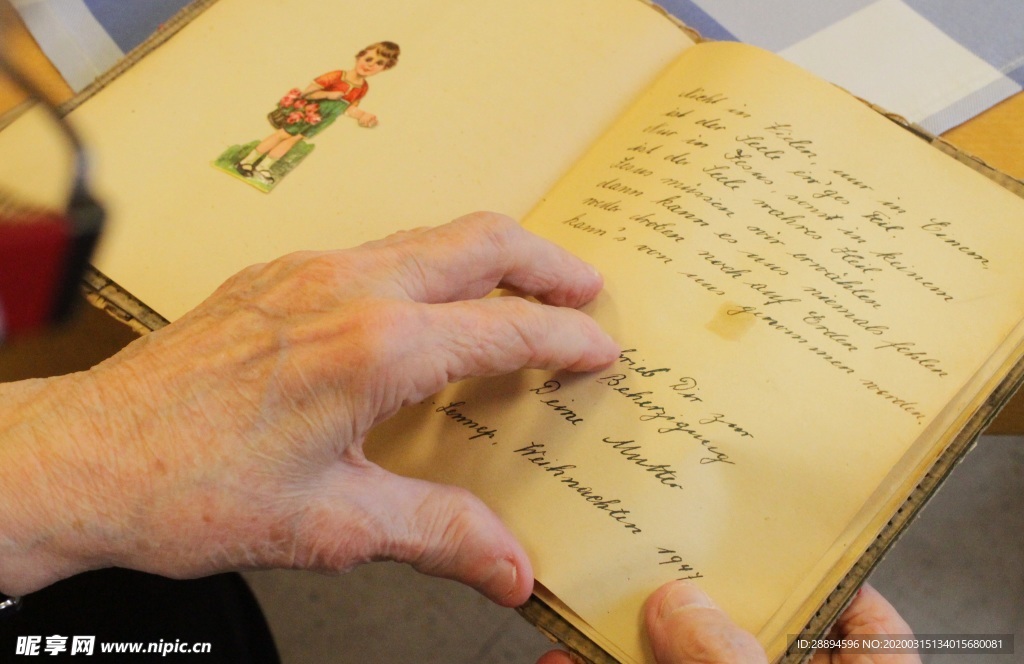 Nicht in Vielen, nur in Einem,
ist der Seele ew'ges Teil.
Nur in Jesus, sonst in keinem
ist der Seele wahres Heil
Jesus müssen wir erwählen
dann kann es uns niemals fehlen
weder droben noch auf Erden
kann's von uns genommen werden.
Dir zur
Beherzigung
Deine Mutter
Lennep, Weihnachten 1947
昵享网 www.nipic.cn
ID:28894596 NO:20200315134015680081